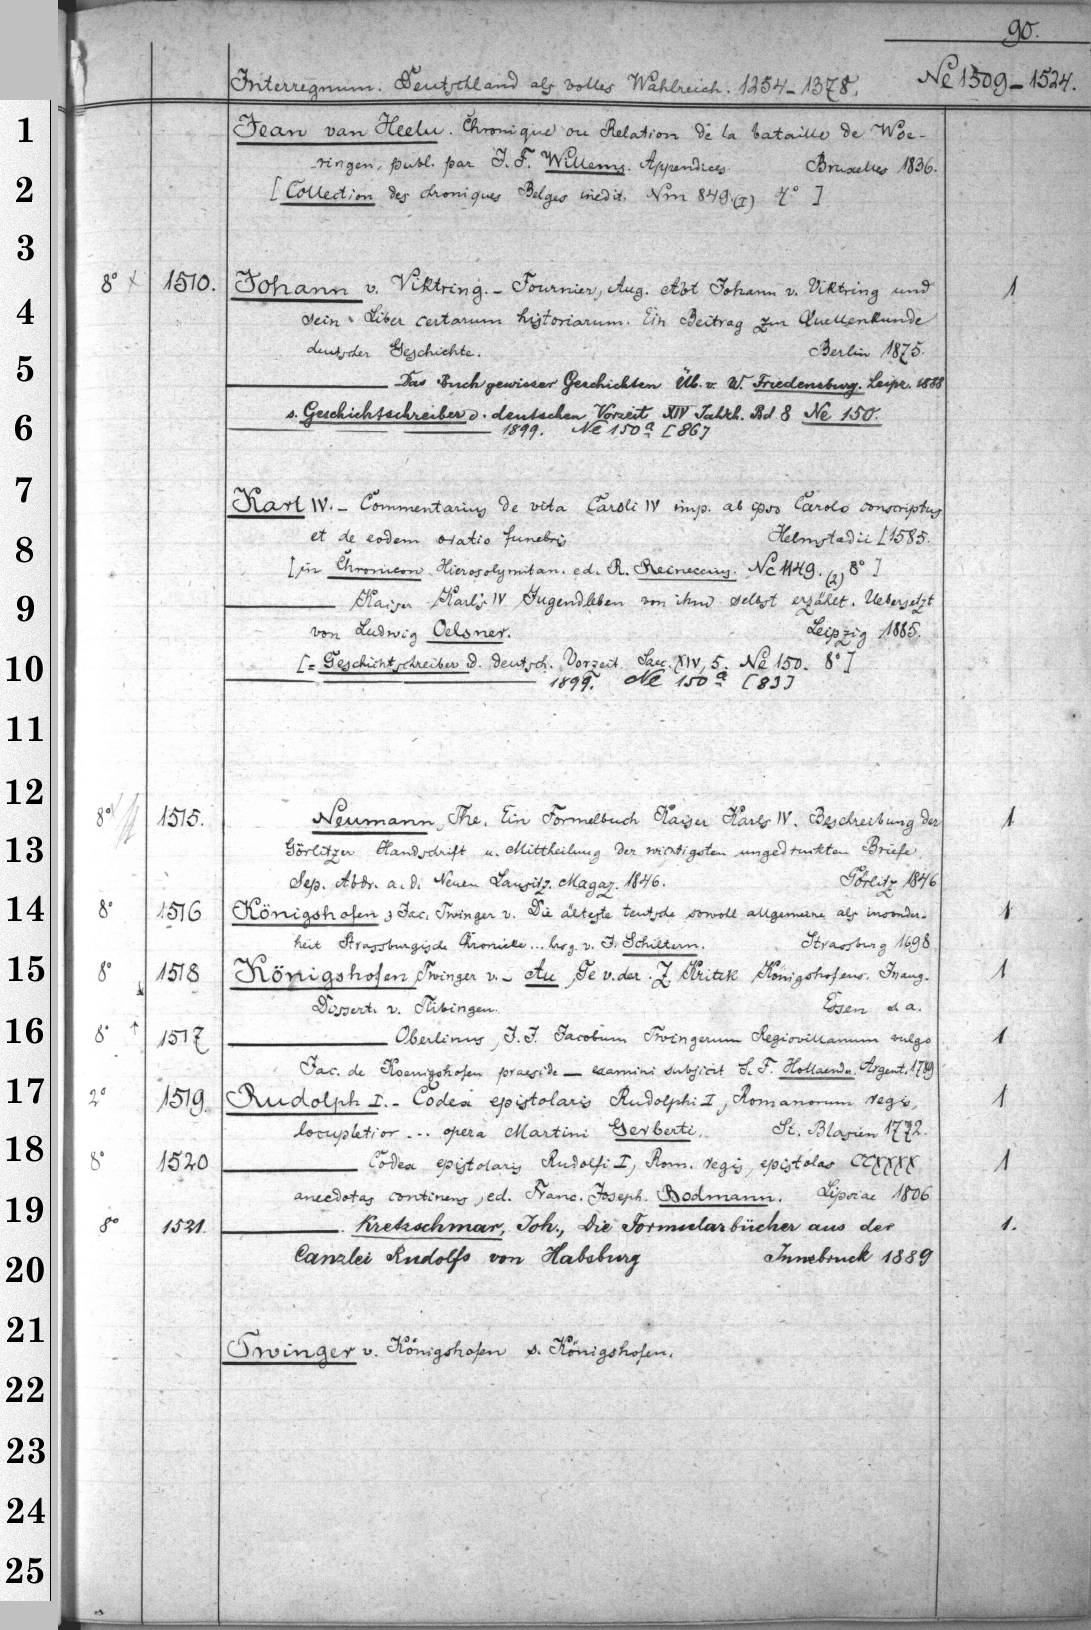 90.
Interregnum. Deutschland als volles Wahlreich. 1254-1378. Ne 1509-1524.
1
Jean van Heelu. Chronique ou Relation de la bataille de Woe-
2
ringen, publ. par J. F. Willems. Appendices Bruxelles 1836.
[Collection des chroniques Belges inédit. Nm 849.(I) 4° ]
3
8° x 1510. Johann v. Viktring. - Fournier, Aug. Abt Johann v. Viktring und 1
4
sein Liber certarum historiarum. Ein Beitrag zur Quellenkunde
5
deutscher Geschichte. Berlin 1875.
Das Buch gewisser Geschichten Üb. v. W. Friedensburg. Leipz. 1888
6
s. Geschichtschreiber d. deutschen Vorzeit XIV Jahrh. Bd. 8 Ne 150.
1899. Ne 150a [86]
7
Karl IV. - Commentarius de vita Caroli IV imp. ab ipso Carolo conscriptus
8
et de eodem oratio funebris Helmstadii [1585.
[in Chronicon Hierosolymitan. ed. R. Reineccius. Nc 1149.(2) 8° ]
9
Kaiser Karls IV Jugendleben von ihm selbst erzählt. Uebersetzt
von Ludwig Oelsner. Leipzig 1885.
10
[= Geschichtschreiber d. deutsch. Vorzeit Saec. XIV, 5. Ne 150. 8° ]
1899. Ne 150a [83]
11
12
8° 1515. Neumann, The. Ein Formelbuch Kaiser Karls IV. Beschreibung der 1
13
Görlitzer Handschrift u. Mittheilung der wichtigsten ungedruckten Briefe.
Sep. Abdr. a. d. Neuen Lausitz. Magaz. 1846. Görlitz 1846
14
8° 1516 Königshofen, Jac. Twinger v. Die älteste teutsche sowoll allgemeine als insonder- 1
heit Strassburgische Chronicke... hrsg. v. J. Schiltern. Strassburg 1698
15
8° 1518 Königshofen, Twinger v. - Au, Te v. der. Z. Kritik Königshofens. Inaug. 1
Dissert. v. Tübingen. Essen s. a.
16
8° 1517 Oberlinus, J. J. Jacobum Twingerum Regiovillanum vulgo 1
Jac. de Koenigshofen praeside — examini subjicit S. F. Hollaender. Argent. 1789
17
2° 1519. Rudolph I. - Codex epistolaris Rudolphi I, Romanorum regis, 1
locupletior ... opera Martini Gerberti. St. Blasien 1772.
18
8° 1520 Codex epistolaris Rudolfi I, Rom. regis, epistolas CCXXXX 1
19
anecdotas continens, ed. Franc. Joseph. Bodmann. Lipsiae 1806
8° 1521. Kretzschmar, Joh., Die Formularbücher aus der 1.
20
Canzlei Rudolfs von Habsburg Innsbruck 1889
21
Twinger v. Königshofen s. Königshofen.
22
23
24
25